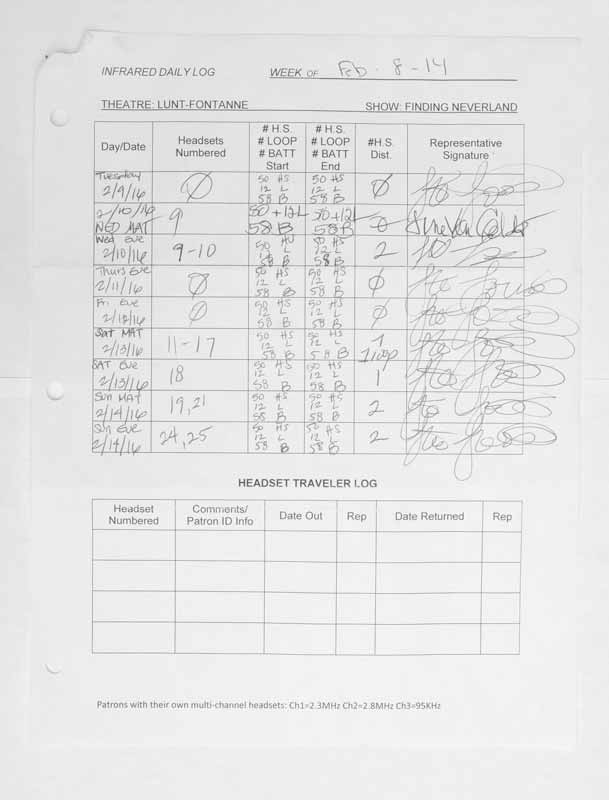 INFRARED DAILY LOG WEEK OF Feb. 8-14
THEATRE: LUNT-FONTANNE SHOW: FINDING NEVERLAND
Day/Date Headsets Numbered # H.S. # LOOP # BATT Start # H.S. # LOOP # BATT End #H.S. Dist. Representative Signature
Tuesday 2/9/16 Ø 50 HS 12 L 58 B 50 HS 12 L 58 B Ø
2/10/16 WED MAT 9 50+12L 58B 50+12L 58B
Wed Eve 2/10/16 9-10 50 HS 12 L 58 B 50 HS 12 L 58 B 2
Thurs Eve 2/11/16 Ø 50 HS 12 L 58 B 50 HS 12 L 58 B Ø
Fri Eve 2/12/16 Ø 50 HS 12 L 58 B 50 HS 12 L 58 B Ø
Sat MAT 2/13/16 11-17 50 HS 12 L 58 B 50 HS 12 L 58 B 7 1 loop
SAT Eve 2/13/16 18 50 HS 12 L 58 B 50 HS 12 L 58 B 1
Sun MAT 2/14/16 19,21 50 HS 12 L 58 B 50 HS 12 L 58 B 2
Sun Eve 2/14/16 24,25 50 HS 12 L 58 B 50 HS 12 L 58 B 2
HEADSET TRAVELER LOG
Headset Numbered Comments/ Patron ID Info Date Out Rep Date Returned Rep
Patrons with their own multi-channel headsets: Ch1=2.3MHz Ch2=2.8MHz Ch3=95KHz